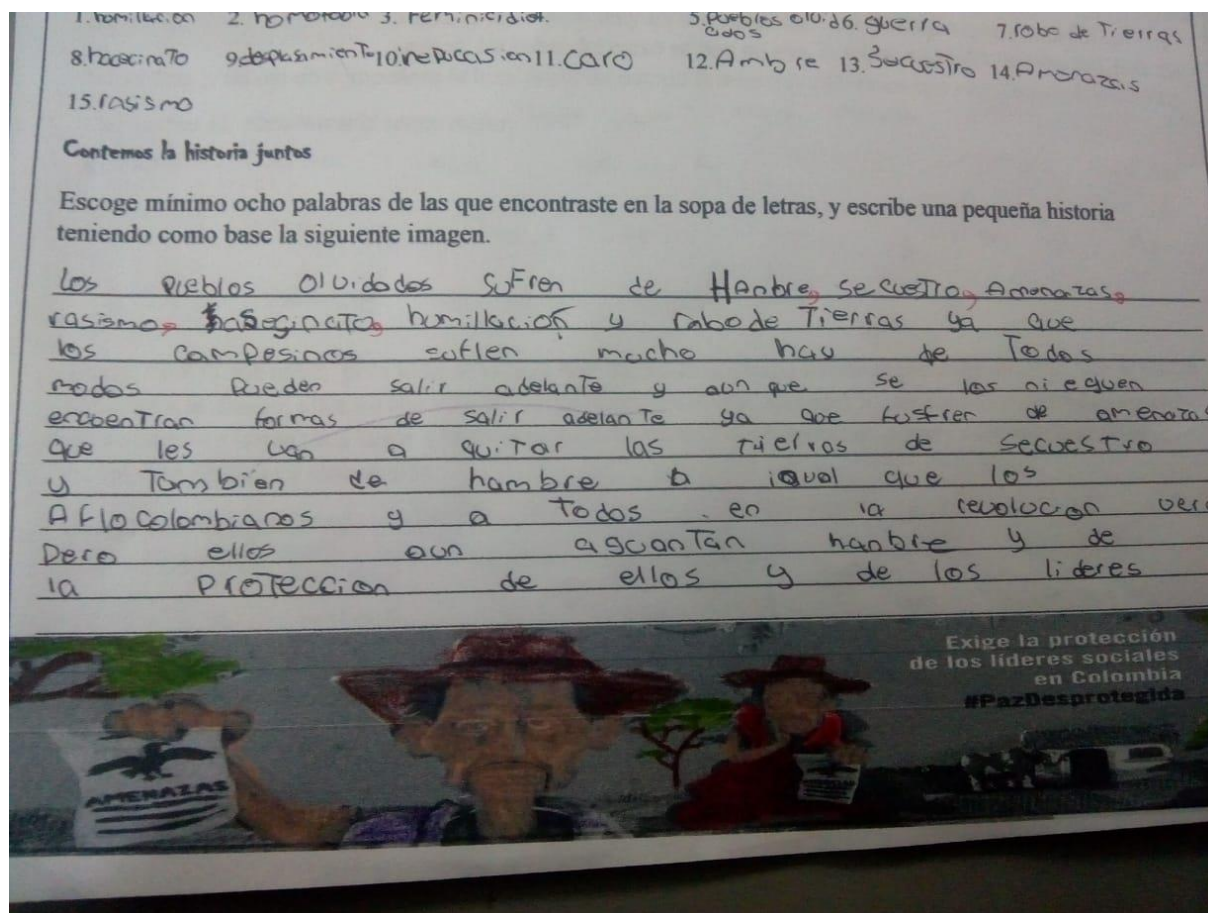 1. homillacion 2. homofobia 3. Feminicidio 5. Pueblos olvidados 6. guerra 7. robo de Tierras
8. hacecinaTo 9. desplasamienTo 10. ineducasion 11. Caro 12. Ambre 13. SecuesTro 14. Amenazas
15. rasismo
Contemos la historia juntos
Escoge mínimo ocho palabras de las que encontraste en la sopa de letras, y escribe una pequeña historia
teniendo como base la siguiente imagen.
Los Pueblos Olvidados SuFren de Hanbre, SecuesTro, Amenazas,
rasismo, hasecinaTo, humillacion y robo de Tierras ya que
los CamPesinos suflen mucho hay de Todos
modos Pueden salir adelanTe y aun que se los nieguen
encuenTran formas de salir adelanTe ya que sufren de amenazas
que les van a quiTar las Tierras de SecuesTro
y Tambien de hambre a igual que los
AFlocolombianos y a Todos en la revolucion
Pero ellos aun aguanTan hanbre y de
la ProTeccion de ellos y de los lideres
Exige la protección
de los líderes sociales
en Colombia
#PazDesprotegida
AMENAZAS